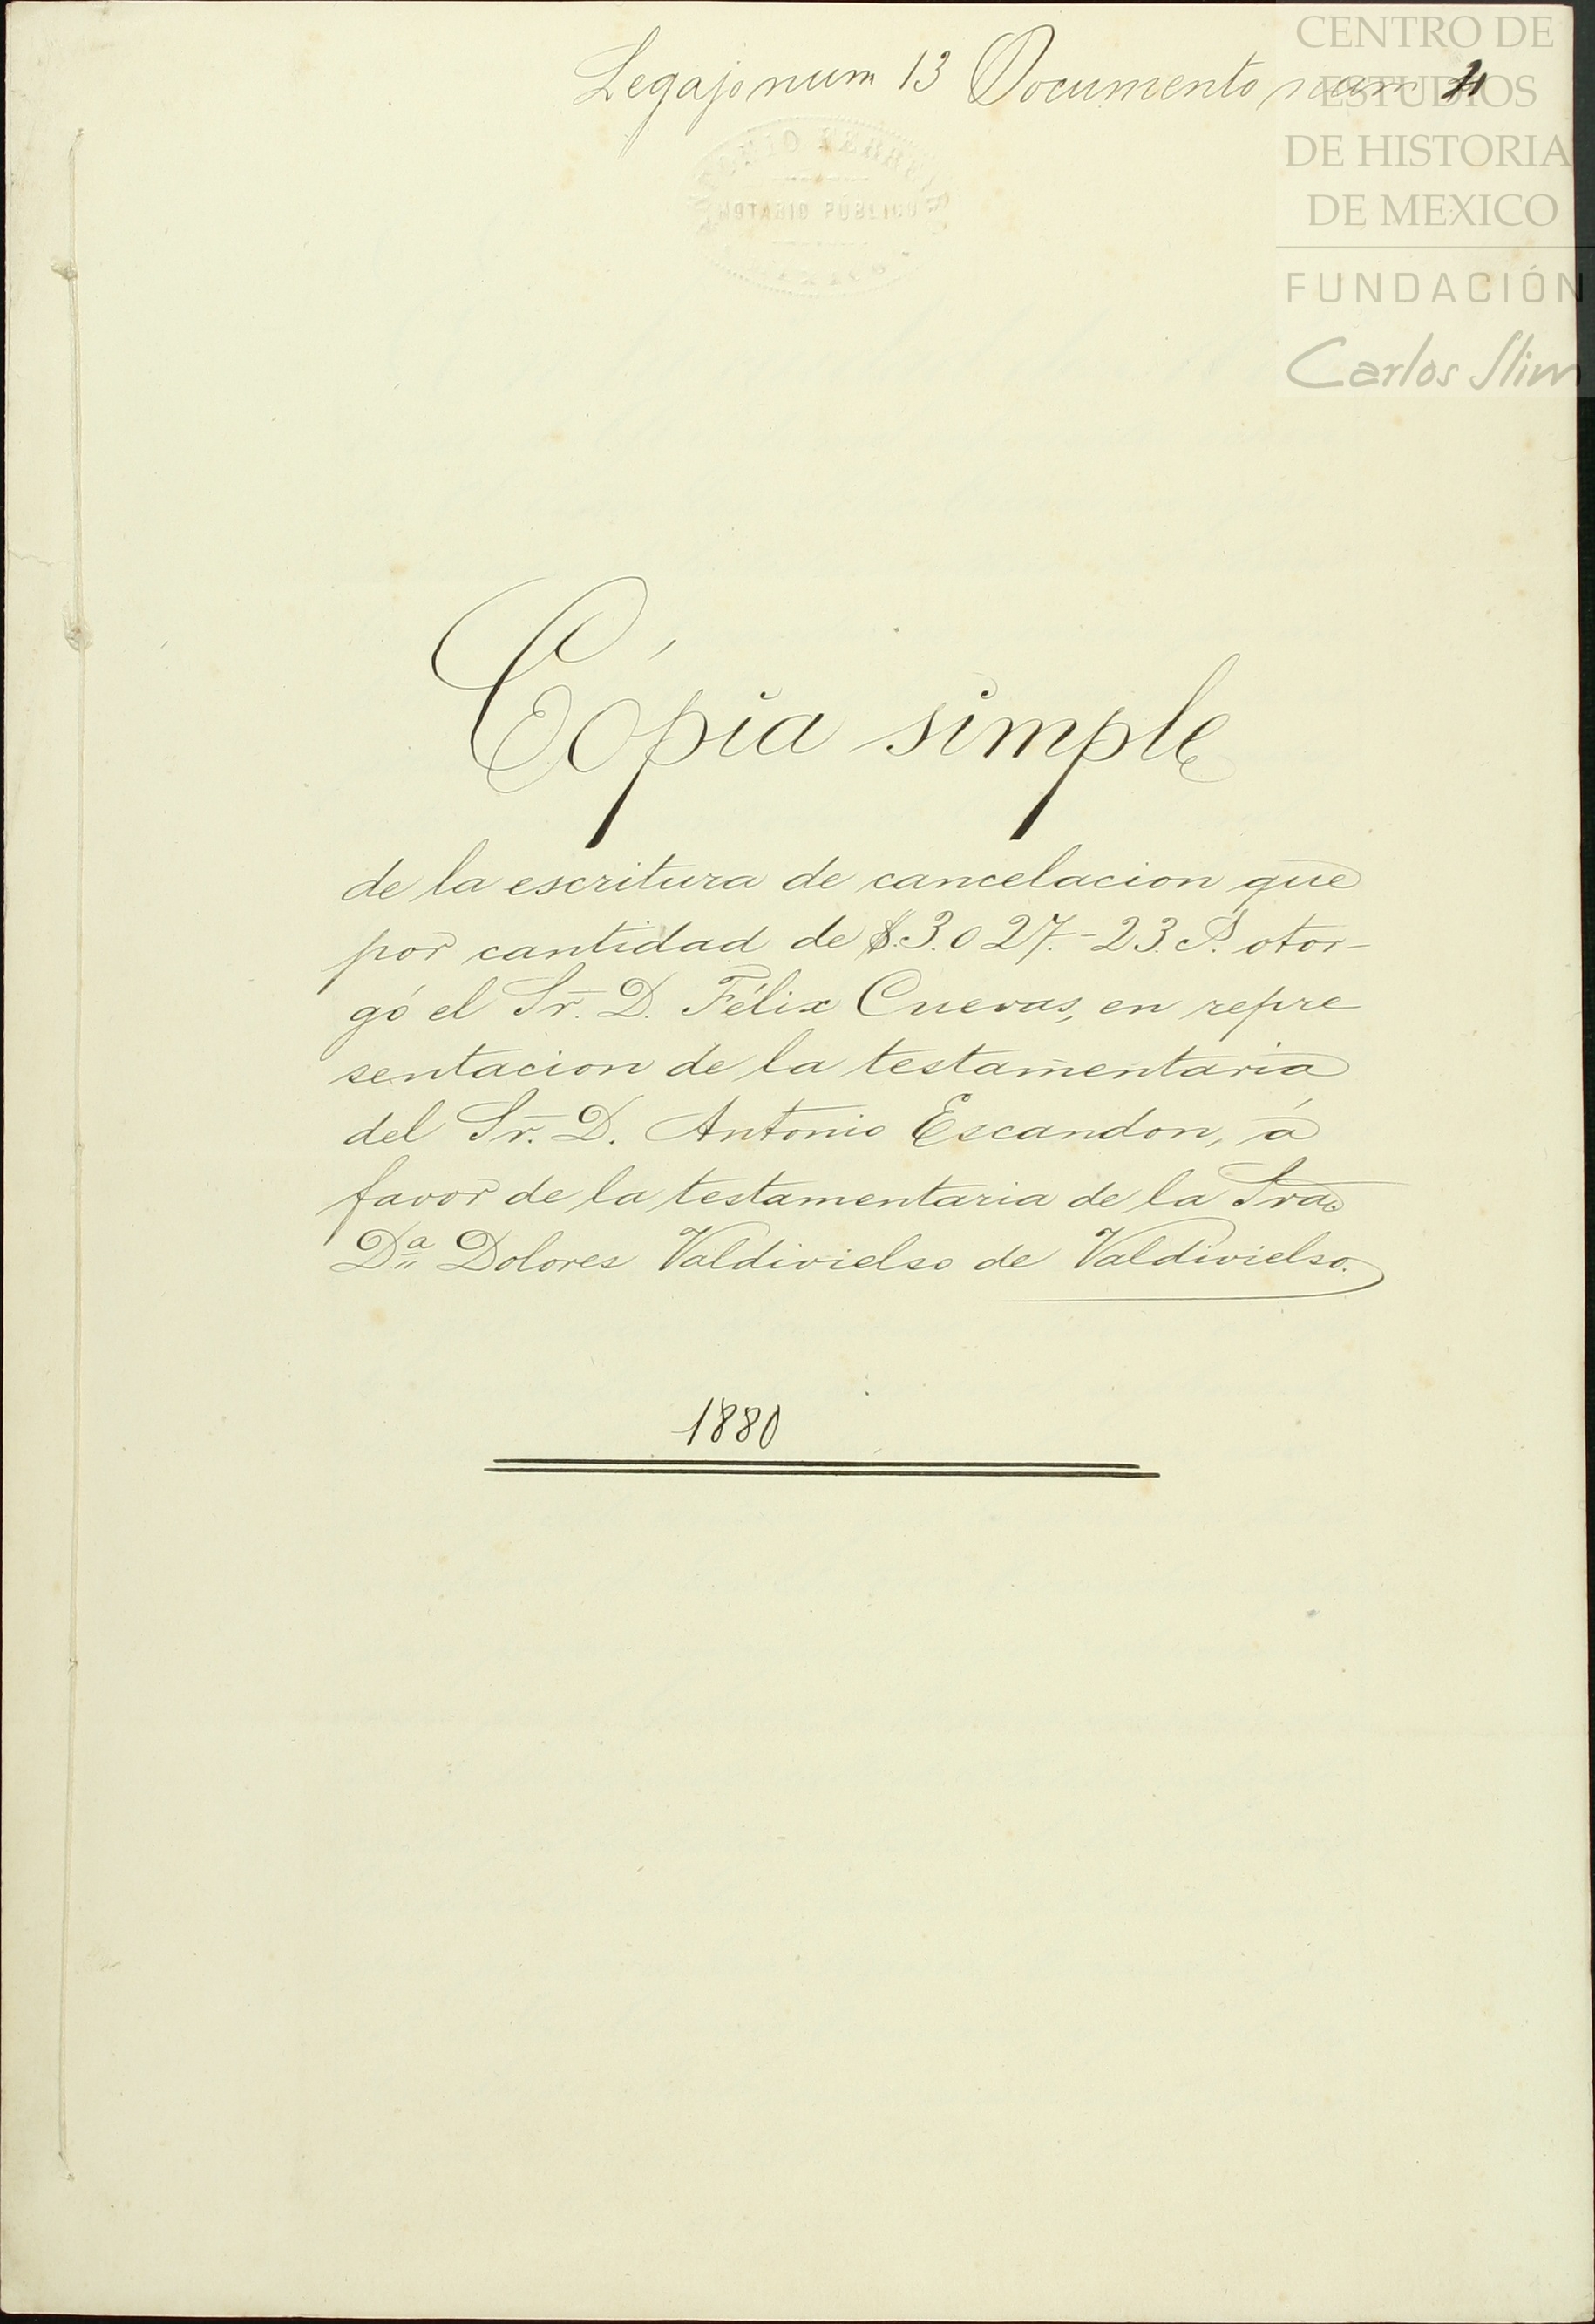 Legajo num 13 Documento num
CENTRO DE
ESTUDIOS
DE HISTORIA
DE MEXICO
FUNDACIÓN
Carlos Slim
NOTARIO PÚBLICO
Cópia simple
de la escritura de cancelacion que
por cantidad de $.3.027.-23. otor-
gó el Sr. D. Félix Cuevas, en repre
sentacion de la testamentaria
del Sr. D. Antonio Escandon, á
favor de la testamentaria de la Sra
Dª Dolores Valdivielso de Valdivielso.
1880